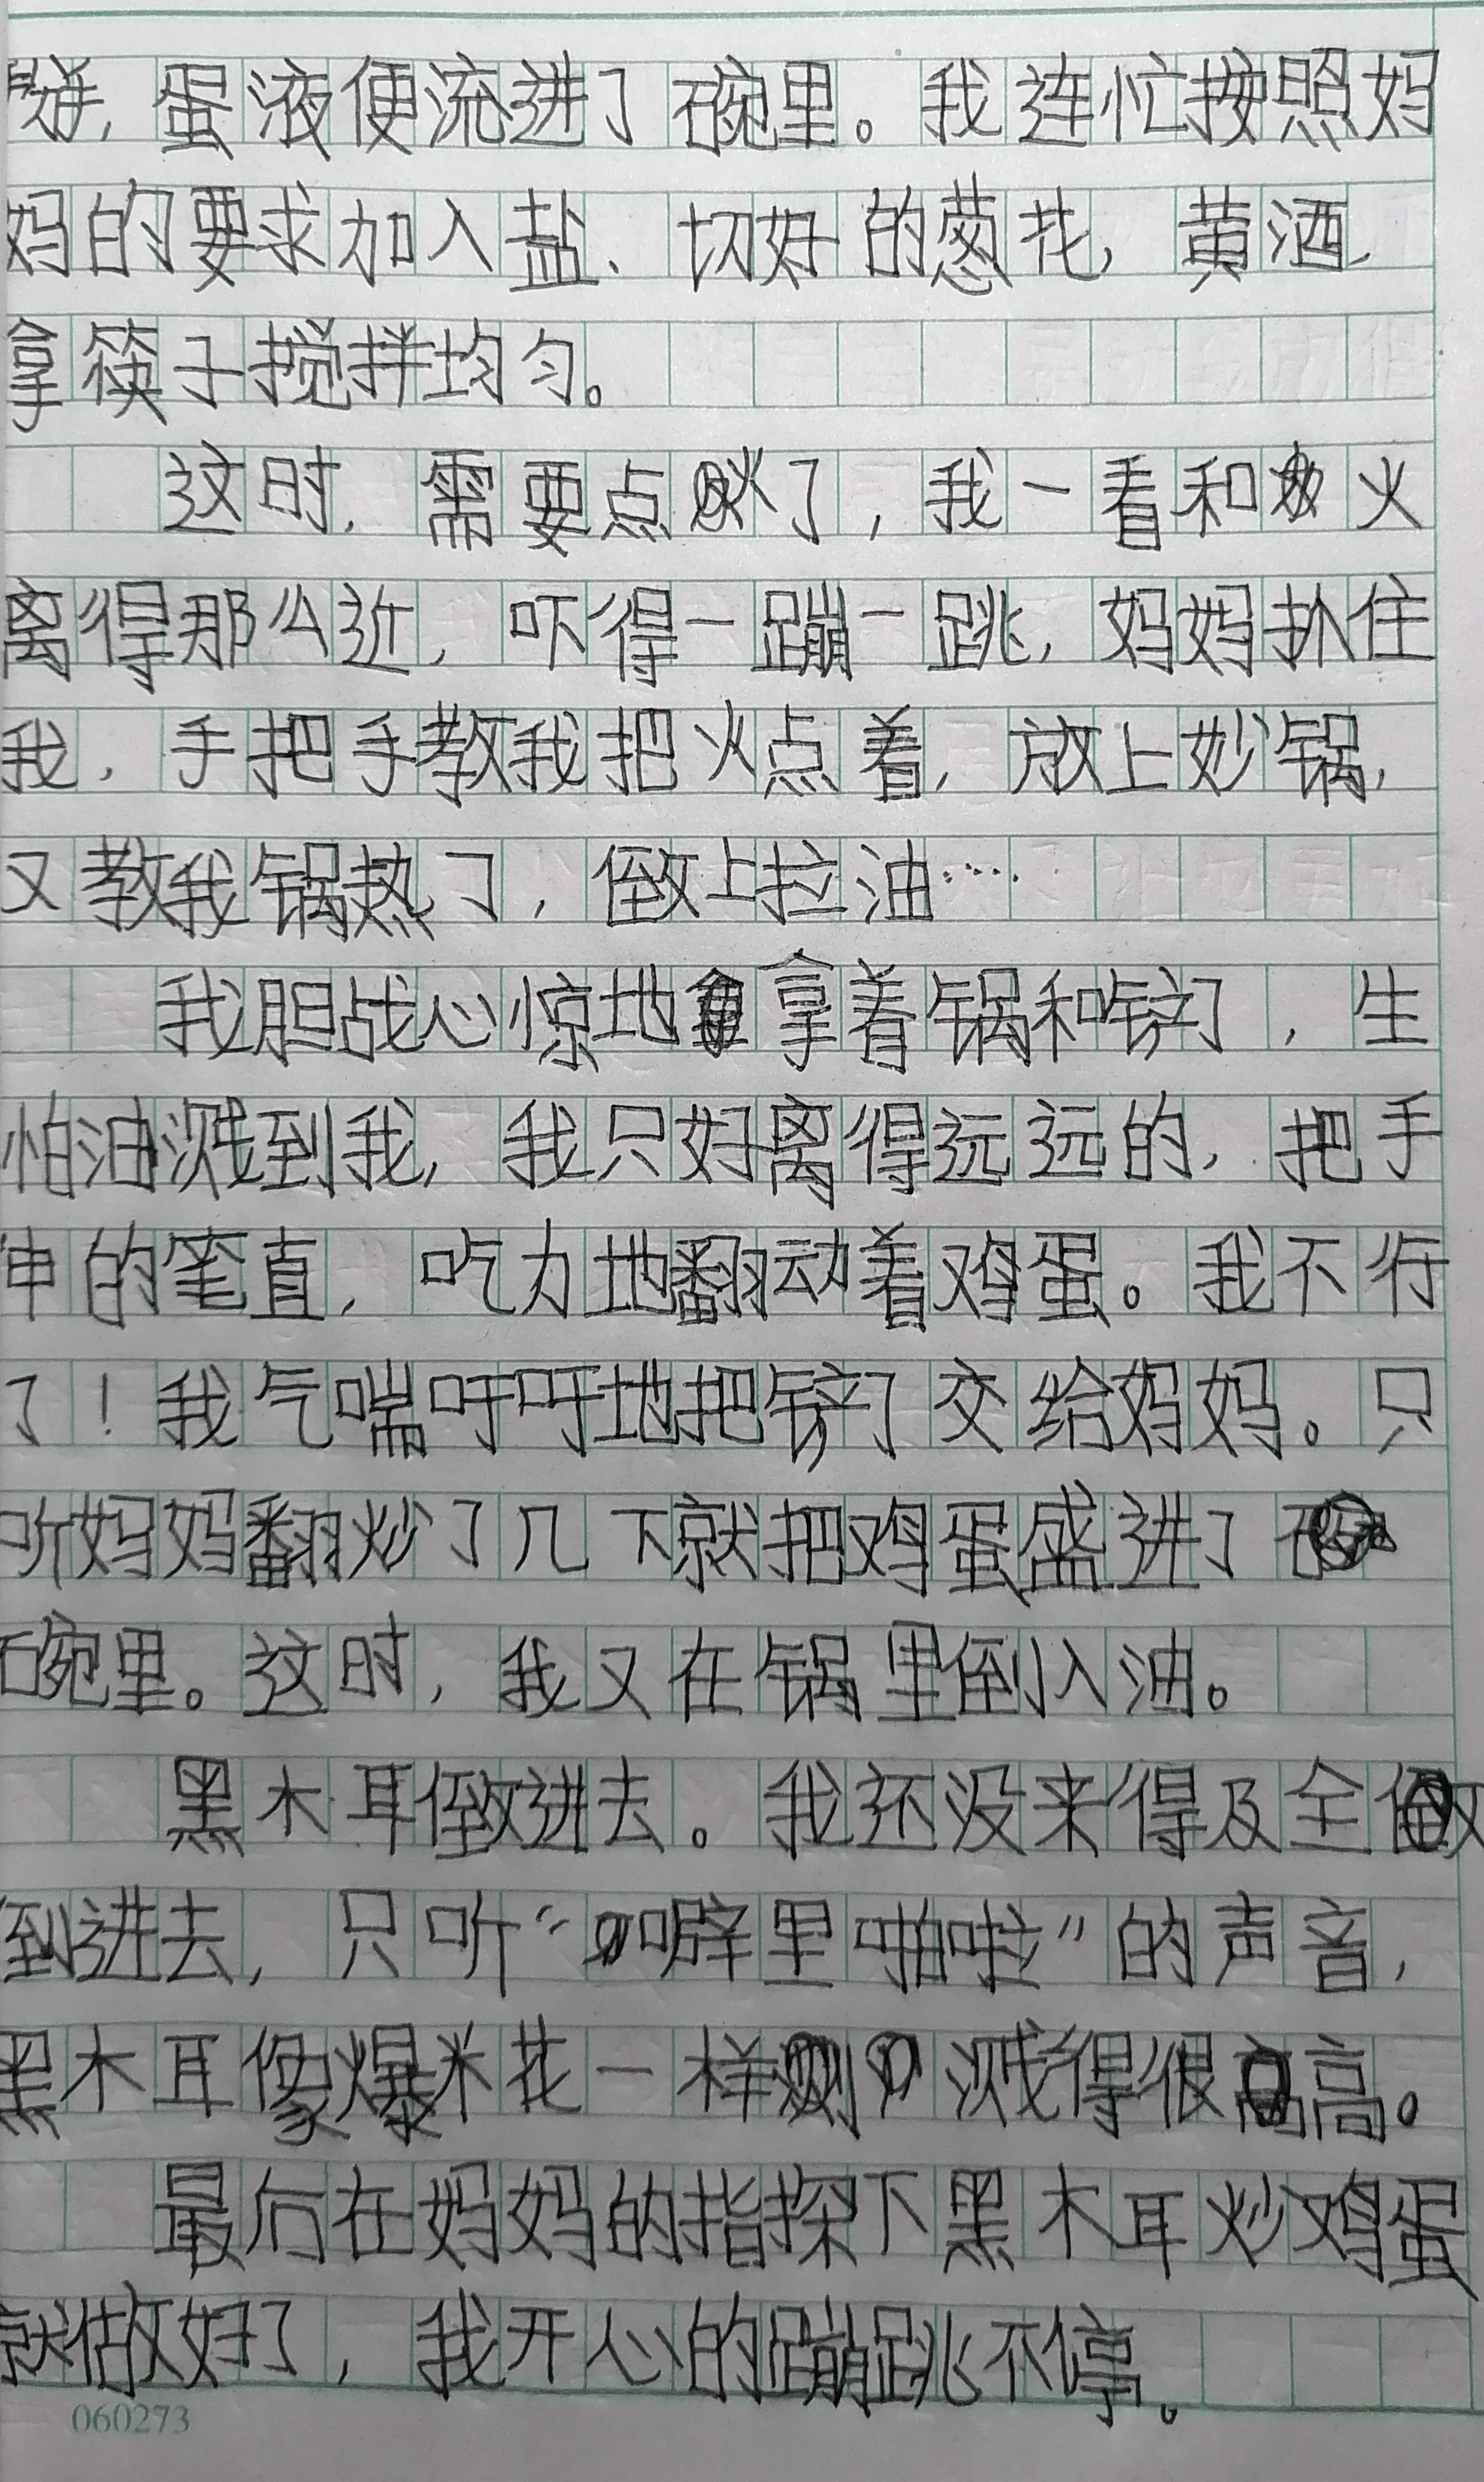 蛋液便流进了碗里。我连忙按照妈
妈的要求加入盐、切好的葱花，黄酒，
拿筷子搅拌均匀。
这时，需要点火了，我一看和火
离得那么近，吓得一蹦一跳，妈妈扒住
我，手把手教我把火点着，放上妙锅，
又教我锅热了，倒上拉油……
我胆战心惊地拿着锅和铲了，生
怕油溅到我，我只好离得远远的，把手
申的笔直，吃力地翻动着鸡蛋。我不行
了！我气喘吁吁地把铲了交给妈妈。只
听妈妈翻炒了几下就把鸡蛋盛进了
碗里。这时，我又在锅里倒入油。
黑木耳倒进去。我还没来得及全
倒进去，只听“噼里啪啦”的声音，
黑木耳像爆米花一样溅得很高。
最后在妈妈的指探下黑木耳炒鸡蛋
就做好了，我开心的蹦跳不停。
060273